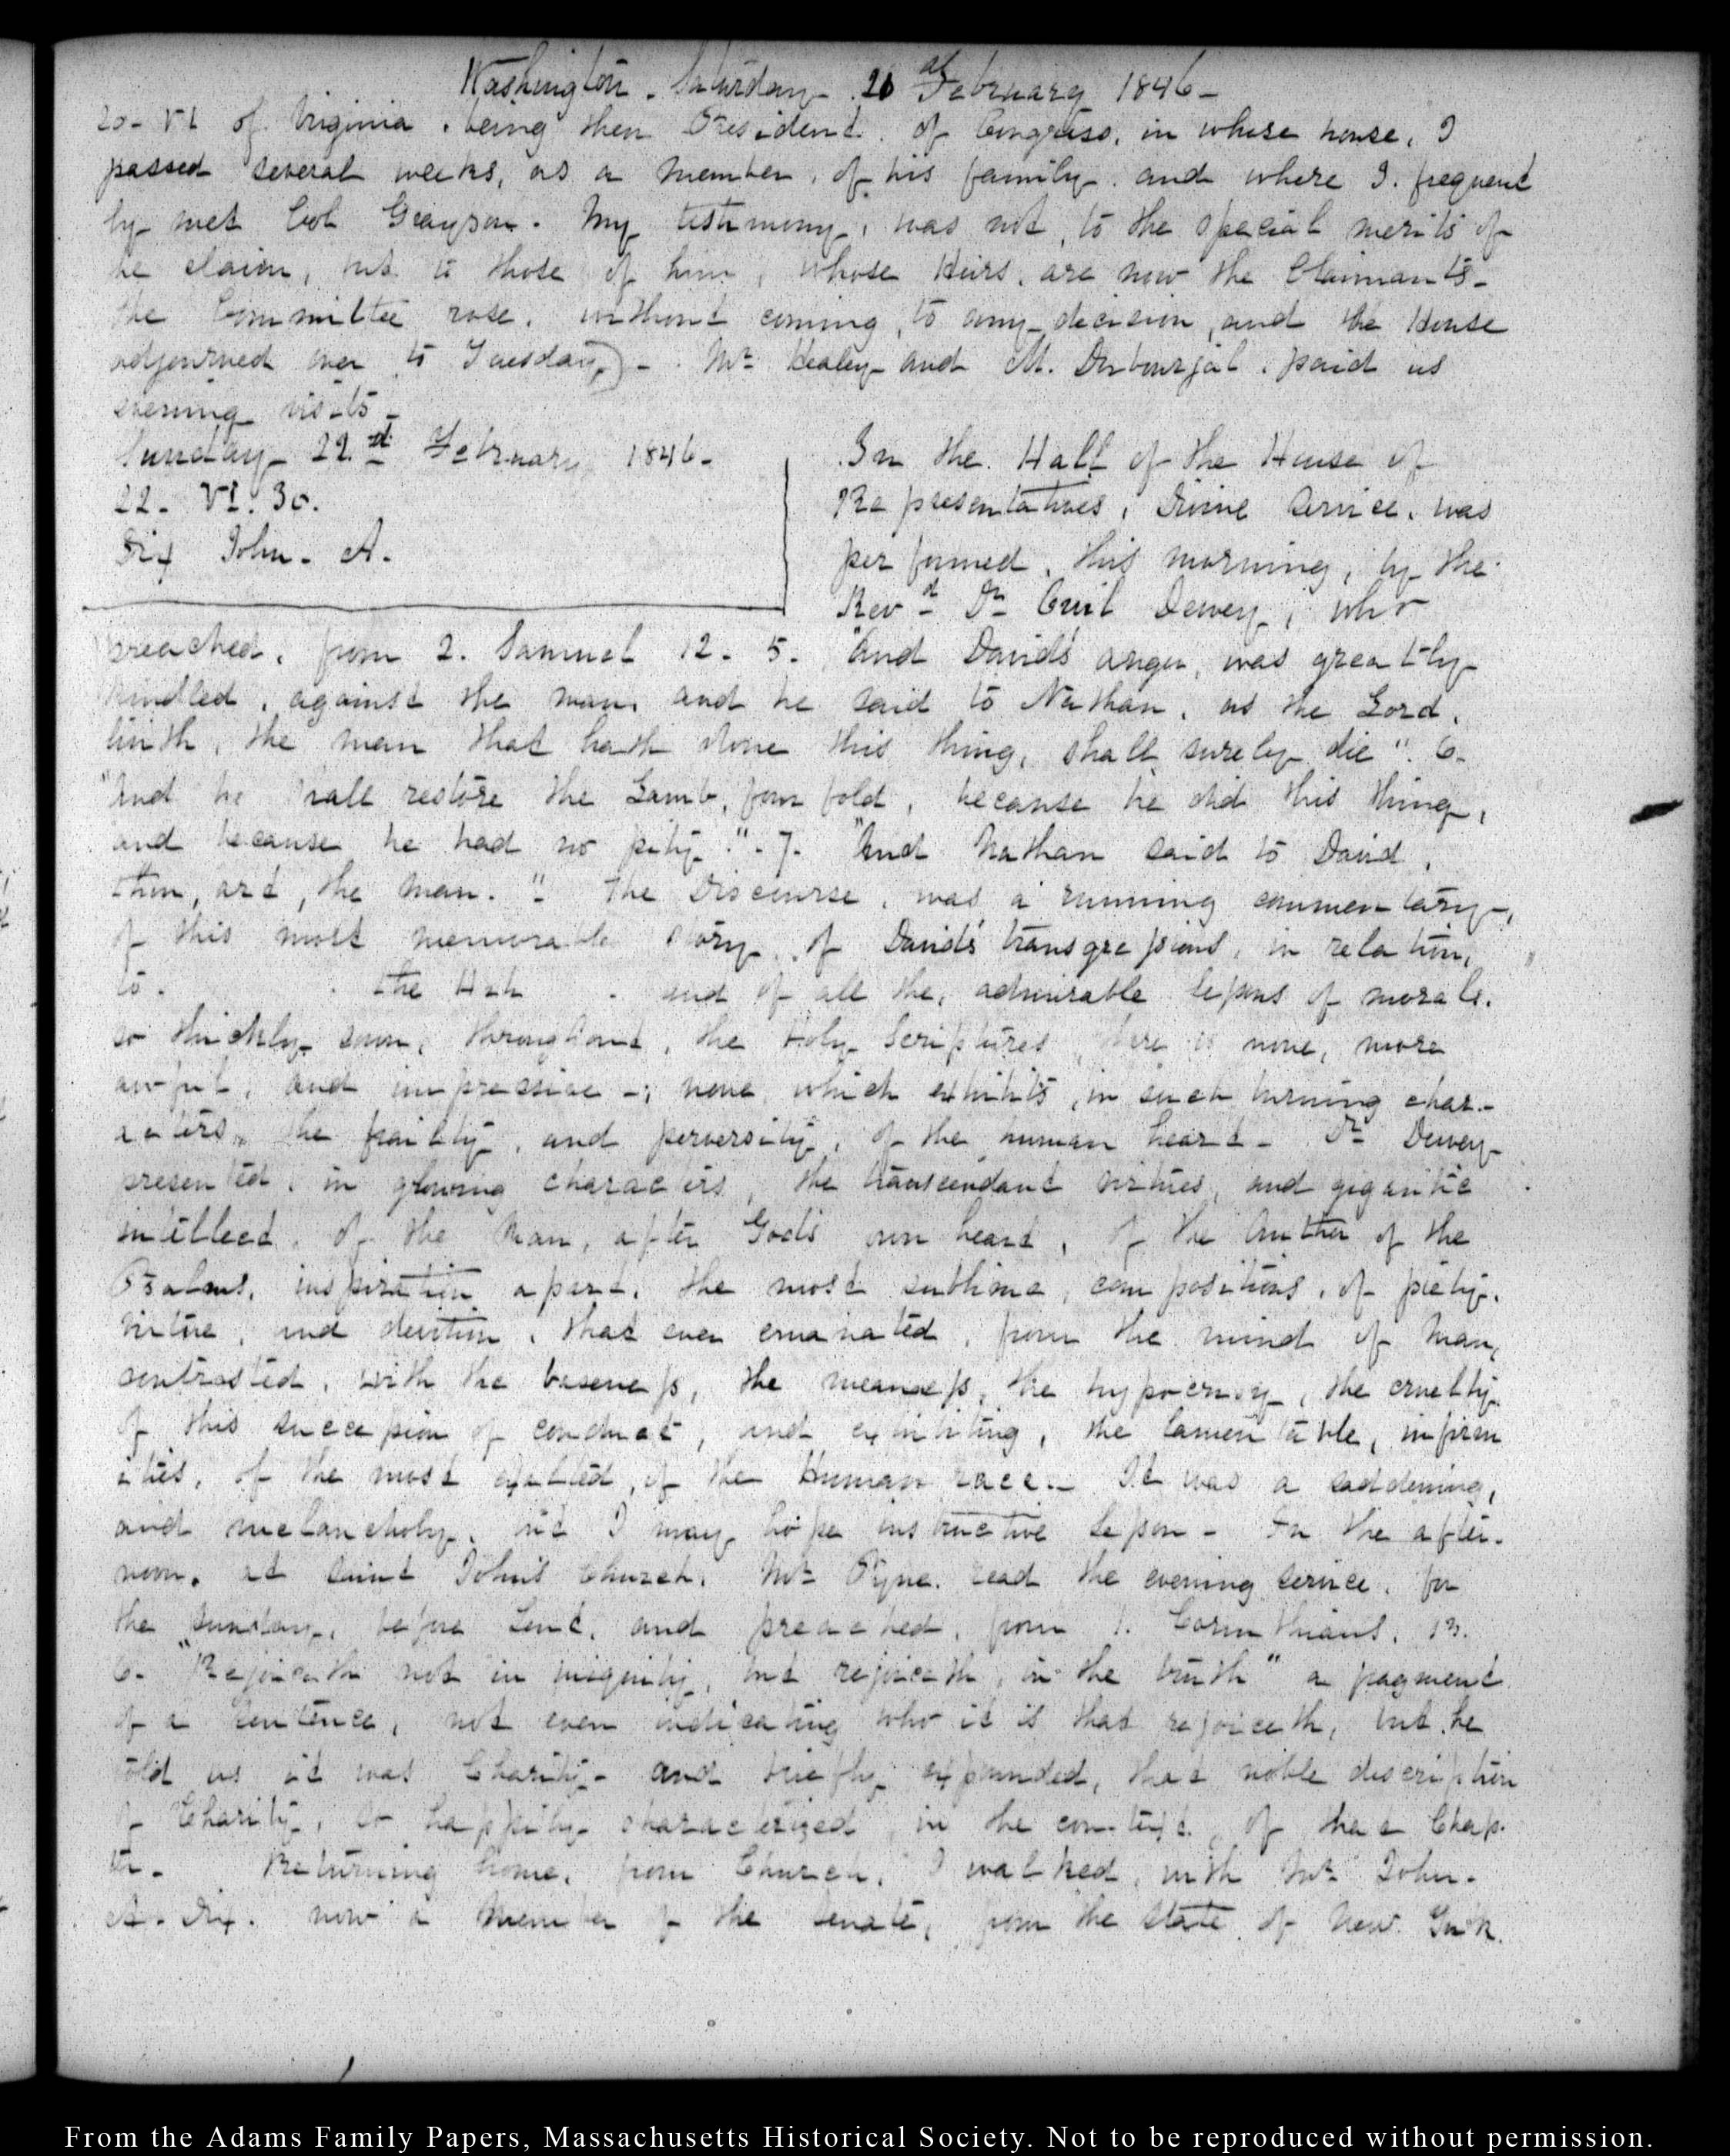 Washington. Saturday 21 st February 1846-
20- VI of Virginia, being then President of Congress, in whose house, I
passed several weeks, as a member, of his family. and where I. frequent
ly met Col Grayson. My testimony, was not, to the special merits of
he claim, but to those of him, whose Heirs, are now the Claimants-
the Committee rose, without coming, to any decision, and the House
adjourned over to Tuesday) - Mr Healey and M. Durbourjal. paid us
evening visits-
Sunday 22.d February 1846-
22- VI. 30.
Dix John- A.
In the Hall of the House of
Representatives, Divine Service, was
performed, this morning, by the
Revd Dr Dewey, who
preached, from 2. Samuel 12- 5. "And David's anger, was greatly
kindled, against the man, and he said to Nathan, as the Lord,
liveth, the man that hath done this thing, shall surely die". 6-
"And he shall restore the Lamb, four fold, because he did this thing,
and because he had no pity"- 7- "And Nathan said to David,
thou, art, the man."- The Discourse, was a running commentary,
of this most memorable story, of David's transgressions, in relation,
to. the and of all the, admirable lessons of morals.
so thickly sown, throughout, the Holy Scriptures, there is none, more
awful, and impressive -; none which exhibits, in such burning char-
acters, the frailty, and perversity, of the human heart- Dr Dewey
presented, in glowing characters, the transcendant virtues, and gigantic
intellect, of the Man, after God's own heart, of the Author of the
Psalms, inspiration apart, the most sublime, compositions, of piety,
virtue, and devotion, that ever emanated, from the mind of Man,
contrasted, with the baseness, the meanness, the hypocrisy, the cruelty
of this succession of conduct, and exhibiting, the lamentable, infirm
ities, of the most exalted, of the Human race.- It was a saddening,
and melancholy, but I may hope instructive lesson- In the after-
noon, at Saint John's Church, Mr Pyne. read the evening service, for
the Sunday, before Lent, and preached, from 1. Corinthians. 13.
6- "Rejoiceth not in iniquity, but rejoiceth, in the truth" a fragment
of a sentence, not even indicating who it is that rejoiceth, but he
told us it was Charity- and briefly expounded, that noble description
of Charity, so happily characterized in the context, of that Chap-
ter- Returning home, from Church, I walked, with Mr John-
A- Dix. now a Member of the Senate, from the State of New York.
From the Adams Family Papers, Massachusetts Historical Society. Not to be reproduced without permission.